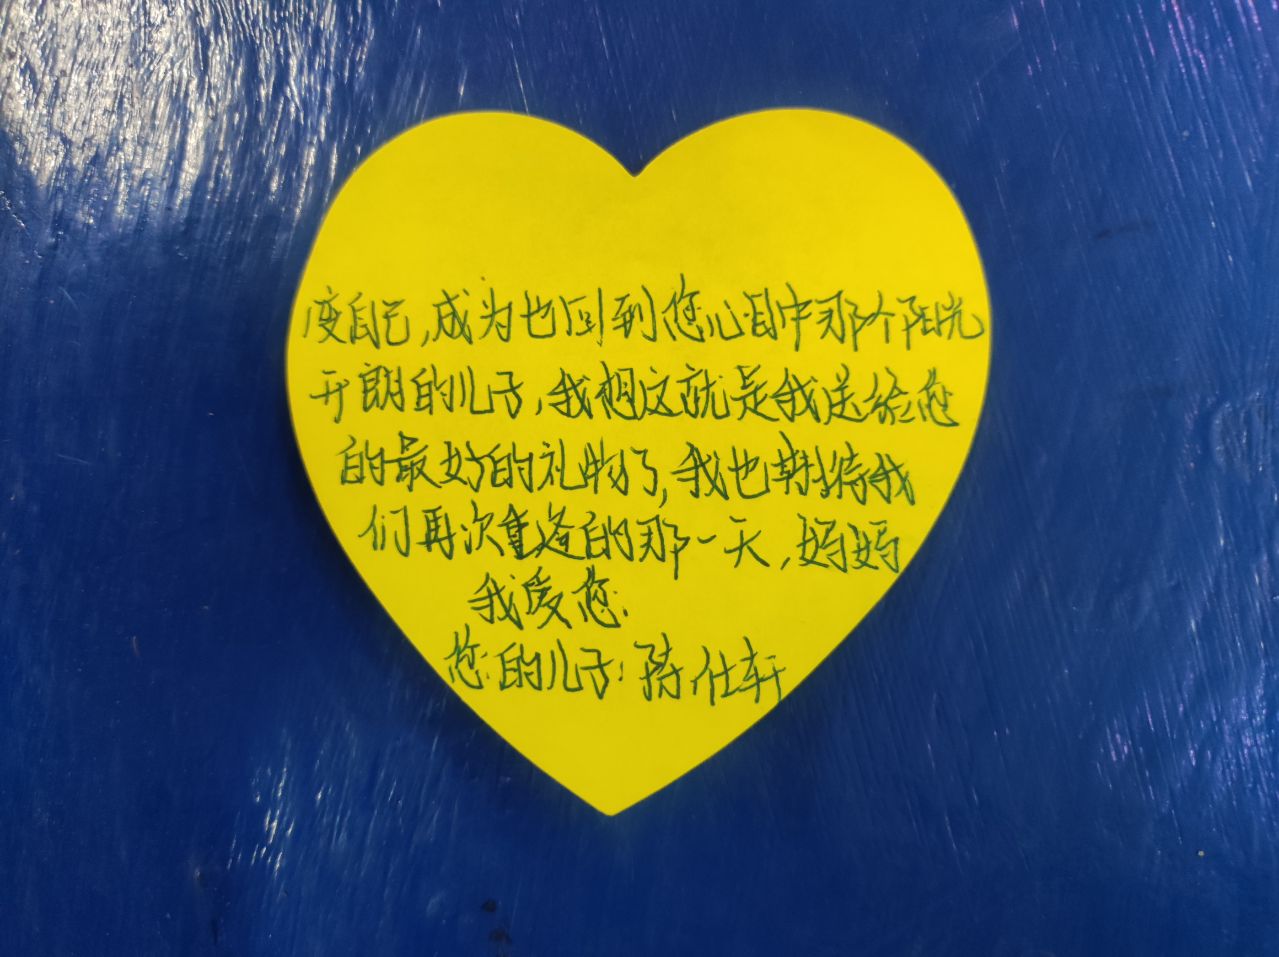 变自己,成为也回到您心目中那个阳光
开朗的儿子,我想这就是我送给您
的最好的礼物了,我也期待我
们再次重逢的那一天,妈妈
我爱您.
您的儿子:陈仕轩